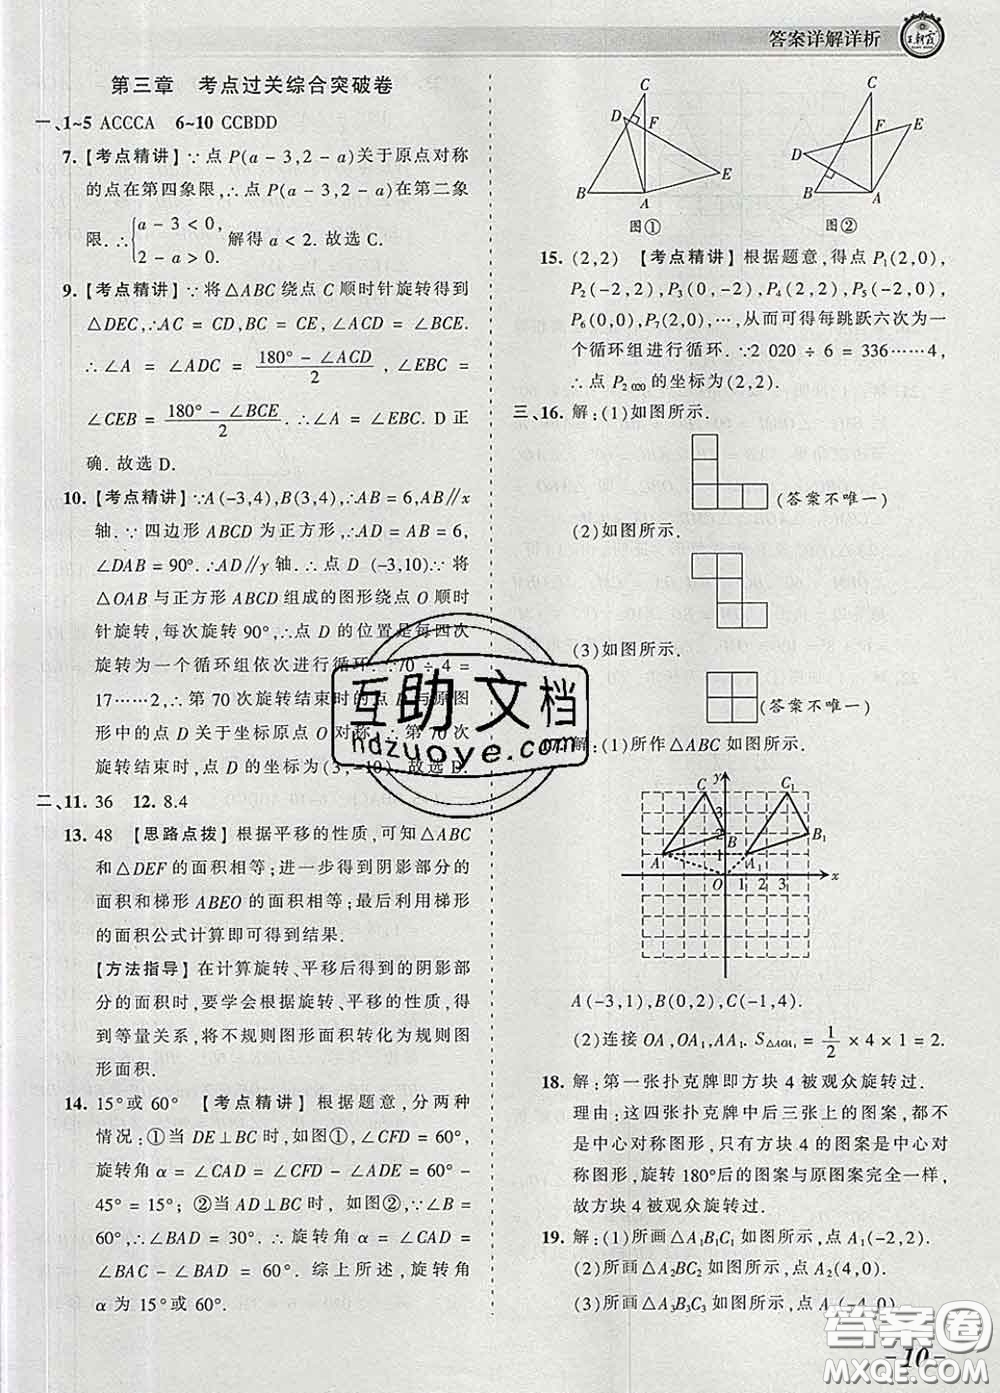 答案详解详析
王朝霞
第三章 考点过关综合突破卷
一、1~5 ACCCA 6~10 CCBDD
7.【考点精讲】∵点 P(a-3,2-a)关于原点对称
的点在第四象限,∴点 P(a-3,2-a)在第二象
限.∴{a-3<0, 2-a>0. 解得 a<2. 故选 C.
9.【考点精讲】∵将△ABC 绕点 C 顺时针旋转得到
△DEC,∴AC=CD,BC=CE,∠ACD=∠BCE.
∴∠A=∠ADC=(180°-∠ACD)/2,∠EBC=
∠CEB=(180°-∠BCE)/2.∴∠A=∠EBC. D 正
确. 故选 D.
10.【考点精讲】∵A(-3,4),B(3,4),∴AB=6,AB∥x
轴.∵四边形 ABCD 为正方形,∴AD=AB=6,
∠DAB=90°.∴AD∥y 轴.∴点 D (-3,10).∵将
△OAB 与正方形 ABCD 组成的图形绕点 O 顺时
针旋转,每次旋转90°,∴点 D 的位置是每四次
旋转为一个循环组依次进行循环.∵70÷4=
17……2,∴第 70 次旋转结束时的点 D 与原图
形中的点 D 关于坐标原点 O 对称.∴第 70 次
旋转结束时,点 D 的坐标为(3,-10). 故选 D.
二、11. 36 12. 8.4
13. 48 【思路点拨】根据平移的性质,可知△ABC
和△DEF 的面积相等;进一步得到阴影部分的
面积和梯形 ABEO 的面积相等;最后利用梯形
的面积公式计算即可得到结果.
【方法指导】在计算旋转、平移后得到的阴影部
分的面积时,要学会根据旋转、平移的性质,得
到等量关系,将不规则图形面积转化为规则图
形面积.
14. 15°或 60° 【考点精讲】根据题意,分两种
情况:①当 DE⊥BC 时,如图①,∠CFD=60°,
旋转角 α=∠CAD=∠CFD-∠ADE=60°-
45°=15°;②当 AD⊥BC 时,如图②,∵∠B=
60°,∴∠BAD=30°.∴旋转角 α=∠CAD=
∠BAC-∠BAD=60°. 综上所述,旋转角
α 为 15°或 60°.
C
D
F
E
B
A
图①
C
F
E
D
B
A
图②
15. (2,2) 【考点精讲】根据题意,得点 P₁(2,0),
P₂(-2,2),P₃(0,-2),P₄(2,2),P₅(-2,0),
P₆(0,0),P₇(2,0),…,从而可得每跳跃六次为一
个循环组进行循环.∵2 020÷6=336……4,
∴点 P₂₀₂₀的坐标为(2,2).
三、16. 解:(1)如图所示.
(答案不唯一)
(2)如图所示.
(3)如图所示.
(答案不唯一)
17. 解:(1)所作△ABC 如图所示.
C
y
C₁
3
2
B
B₁
A
1
A₁
O
1
2
3
x
A(-3,1),B(0,2),C(-1,4).
(2)连接 OA,OA₁,AA₁. S△AOA₁=1/2×4×1=2.
18. 解:第一张扑克牌即方块 4 被观众旋转过.
理由:这四张扑克牌中后三张上的图案,都不
是中心对称图形,只有方块 4 的图案是中心对
称图形,旋转 180°后的图案与原图案完全一样,
故方块 4 被观众旋转过.
19. 解:(1)所画△A₁B₁C₁ 如图所示,点 A₁(-2,2).
(2)所画△A₂BC₂ 如图所示,点 A₂(4,0).
(3)所画△A₃B₃C₃ 如图所示,点 A₃(-4,0).
-10-
互助文档
hdzuoye.com
答案圈
MXQE.COM